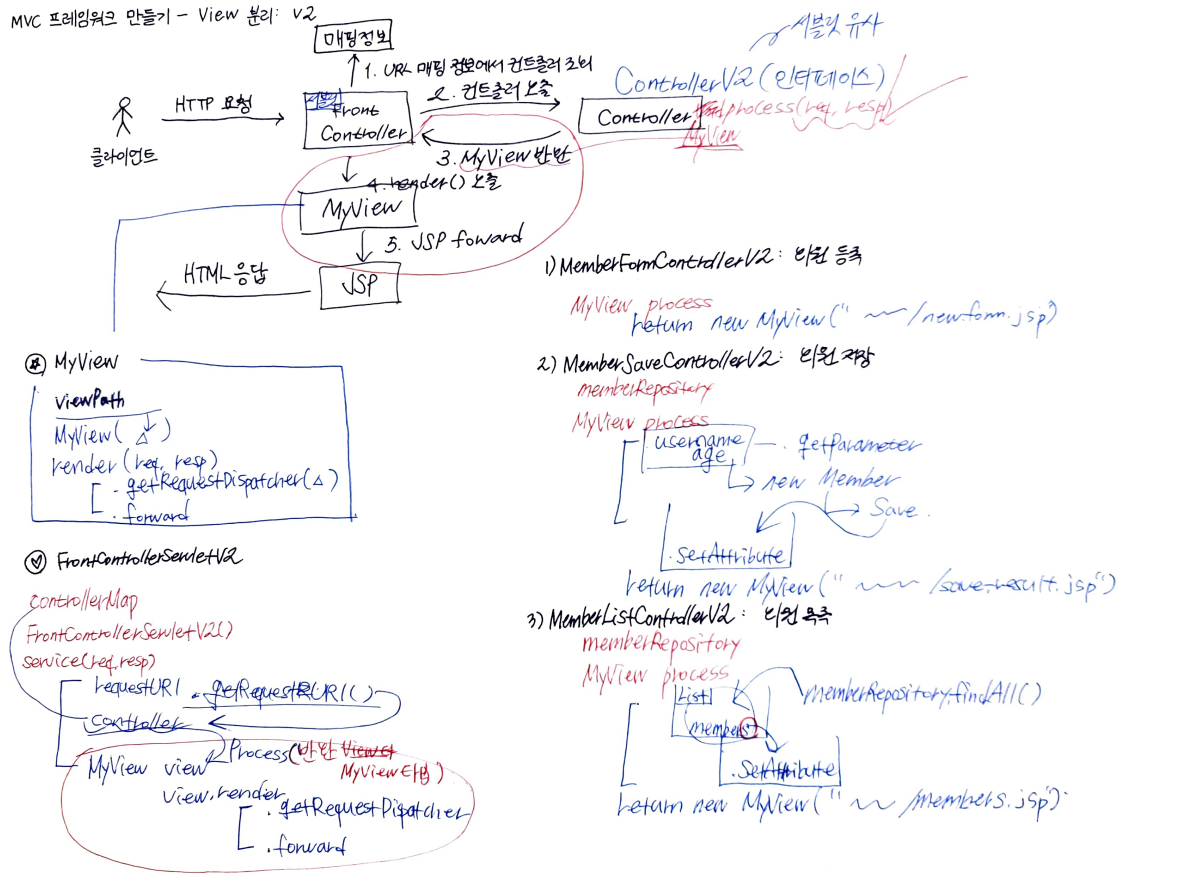 MVC 프레임워크 만들기 - View 분리: V2
매핑정보
서블릿 유사
1. URL 매핑 정보에서 컨트롤러 조회
ControllerV2 (인터페이스)
HTTP 요청
서블릿
Front
Controller
2. 컨트롤러 호출
Controller
process(req, resp)
MyView
클라이언트
3. MyView 반환
4. render() 호출
MyView
5. JSP foward
HTML 응답
JSP
1) MemberFormControllerV2: 회원 등록
MyView process
return new MyView(" ~~ /newform.jsp)
MyView
viewPath
MyView( △ )
render (req, resp)
.getRequestDispatcher(△)
.forward
2) MemberSaveControllerV2: 회원 저장
memberRepository
MyView process
username
age
.getParameter
new Member
Save.
.setAttribute
return new MyView(" ~~ /save-result.jsp")
FrontControllerServletV2
controllerMap
FrontControllerServletV2()
service(req,resp)
requestURI .getRequestRURI()
controller
MyView view
Process(반환 View타
MyView타입)
view.render
.getRequestDipatcher
.forward
3) MemberListControllerV2: 회원 목록
memberRepository
MyView process
List
members
memberRepository.findAll()
.SetAttribute
return new MyView(" ~~ /members.jsp")